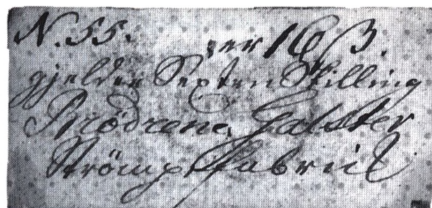 N. 55. er 16 ß.
gjelder Sexten Skilling
Brødrene Galster
Strömpefabrik